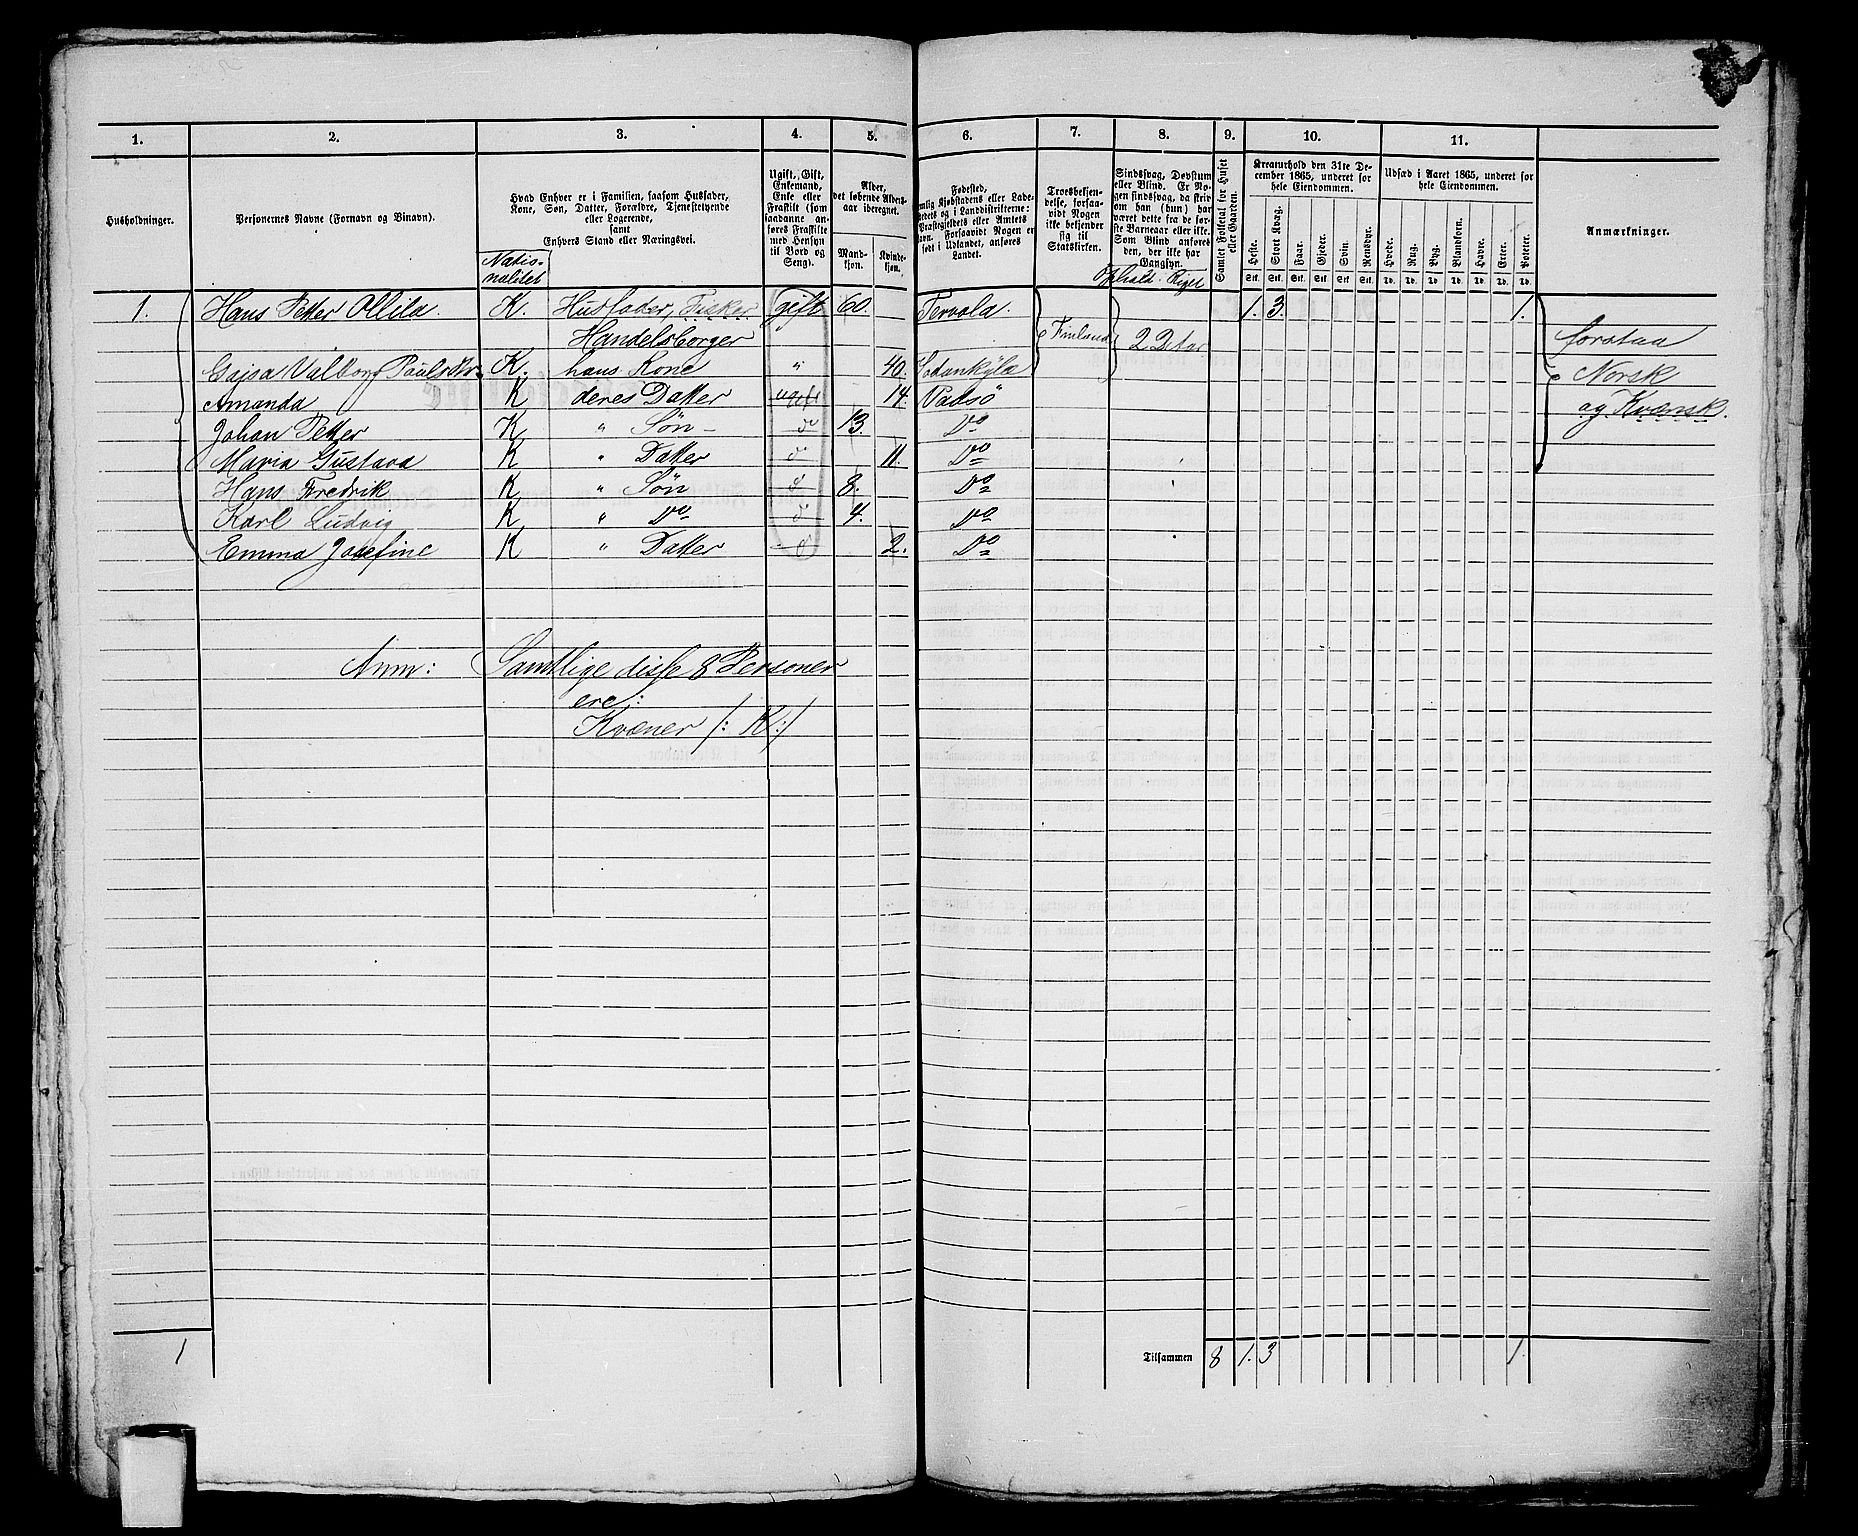 1. 2. 3. 4. 5. 6. 7. 8. 9. 10. 11.
Husholdninger.
Personernes Navne (Fornavn og Binavn).
Hvad Enhver er i Familien, saasom Husfader,
Kone, Søn, Datter, Forældre, Tjenestetyende
eller Logerende,
samt
Enhvers Stand eller Næringsvei.
Natio-
nalitet
Ugift, Gift,
Enkemand,
Enke eller
Fraskilt (som
saadanne an-
føres Fraskilte
med Hensyn
til Bord og
Seng).
Alder,
det løbende Alders-
aar iberegnet.
Mand-
kjøn.
Kvinde-
kjøn.
Fødested,
nemlig Kjøbstadens eller Lade-
stedets og i Landdistrikterne:
Præstegjeldets eller Amtets
Navn. Forsaavidt Nogen er
født i Udlandet, anføres
Landet.
Troesbekjen-
delse, forsaa-
vidt Nogen
ikke bekjender
sig til
Statskirken.
Sindssvag, Døvstum
eller Blind. Er No-
gen sindssvag, da skriv
om han (hun) har
været dette fra de før-
ste Barneaar eller ikke.
Som Blind anføres
den, der ikke har
Gangsyn.
Ophold i Riget
Samlet Folketal for Huset
eller Gaarden.
Kreaturhold den 31te De-
cember 1865, underet for
hele Eiendommen.
Heste. Stort Kvæg. Faar. Gjeder. Svin. Rensdyr.
Stk. Stk. Stk. Stk. Stk. Stk.
Udsæd i Aaret 1865, underet for
hele Eiendommen.
Hvede. Rug. Byg. Blandkorn. Havre. Erter. Poteter.
Td. Td. Td. Td. Td. Td. Td.
Anmærkninger.
1. Hans Petter Ollila. K. Husfader, Fisker gift 60. Tervola. 1. 3. 1.
Handelsborger Finland 2 forstaa
Gajsa Valborg Paulsdtr. K. hans Kone " 40. Sodankylæ Norsk
Amanda K deres Datter ugift 14. Vadsö og Kvænsk.
Johan Petter K " Søn - do 13. Do
Maria Gustava K " Datter do 11. Do
Hans Fredrik K " Søn d 8. Do
Karl Ludvig K " Do d 4. Do
Emma Josefine K " Datter d 2. Do
Anm: Samtlige disse 8 Personer
ere:
Kvæner /: K :/
1 Tilsammen 8 1. 3 1.